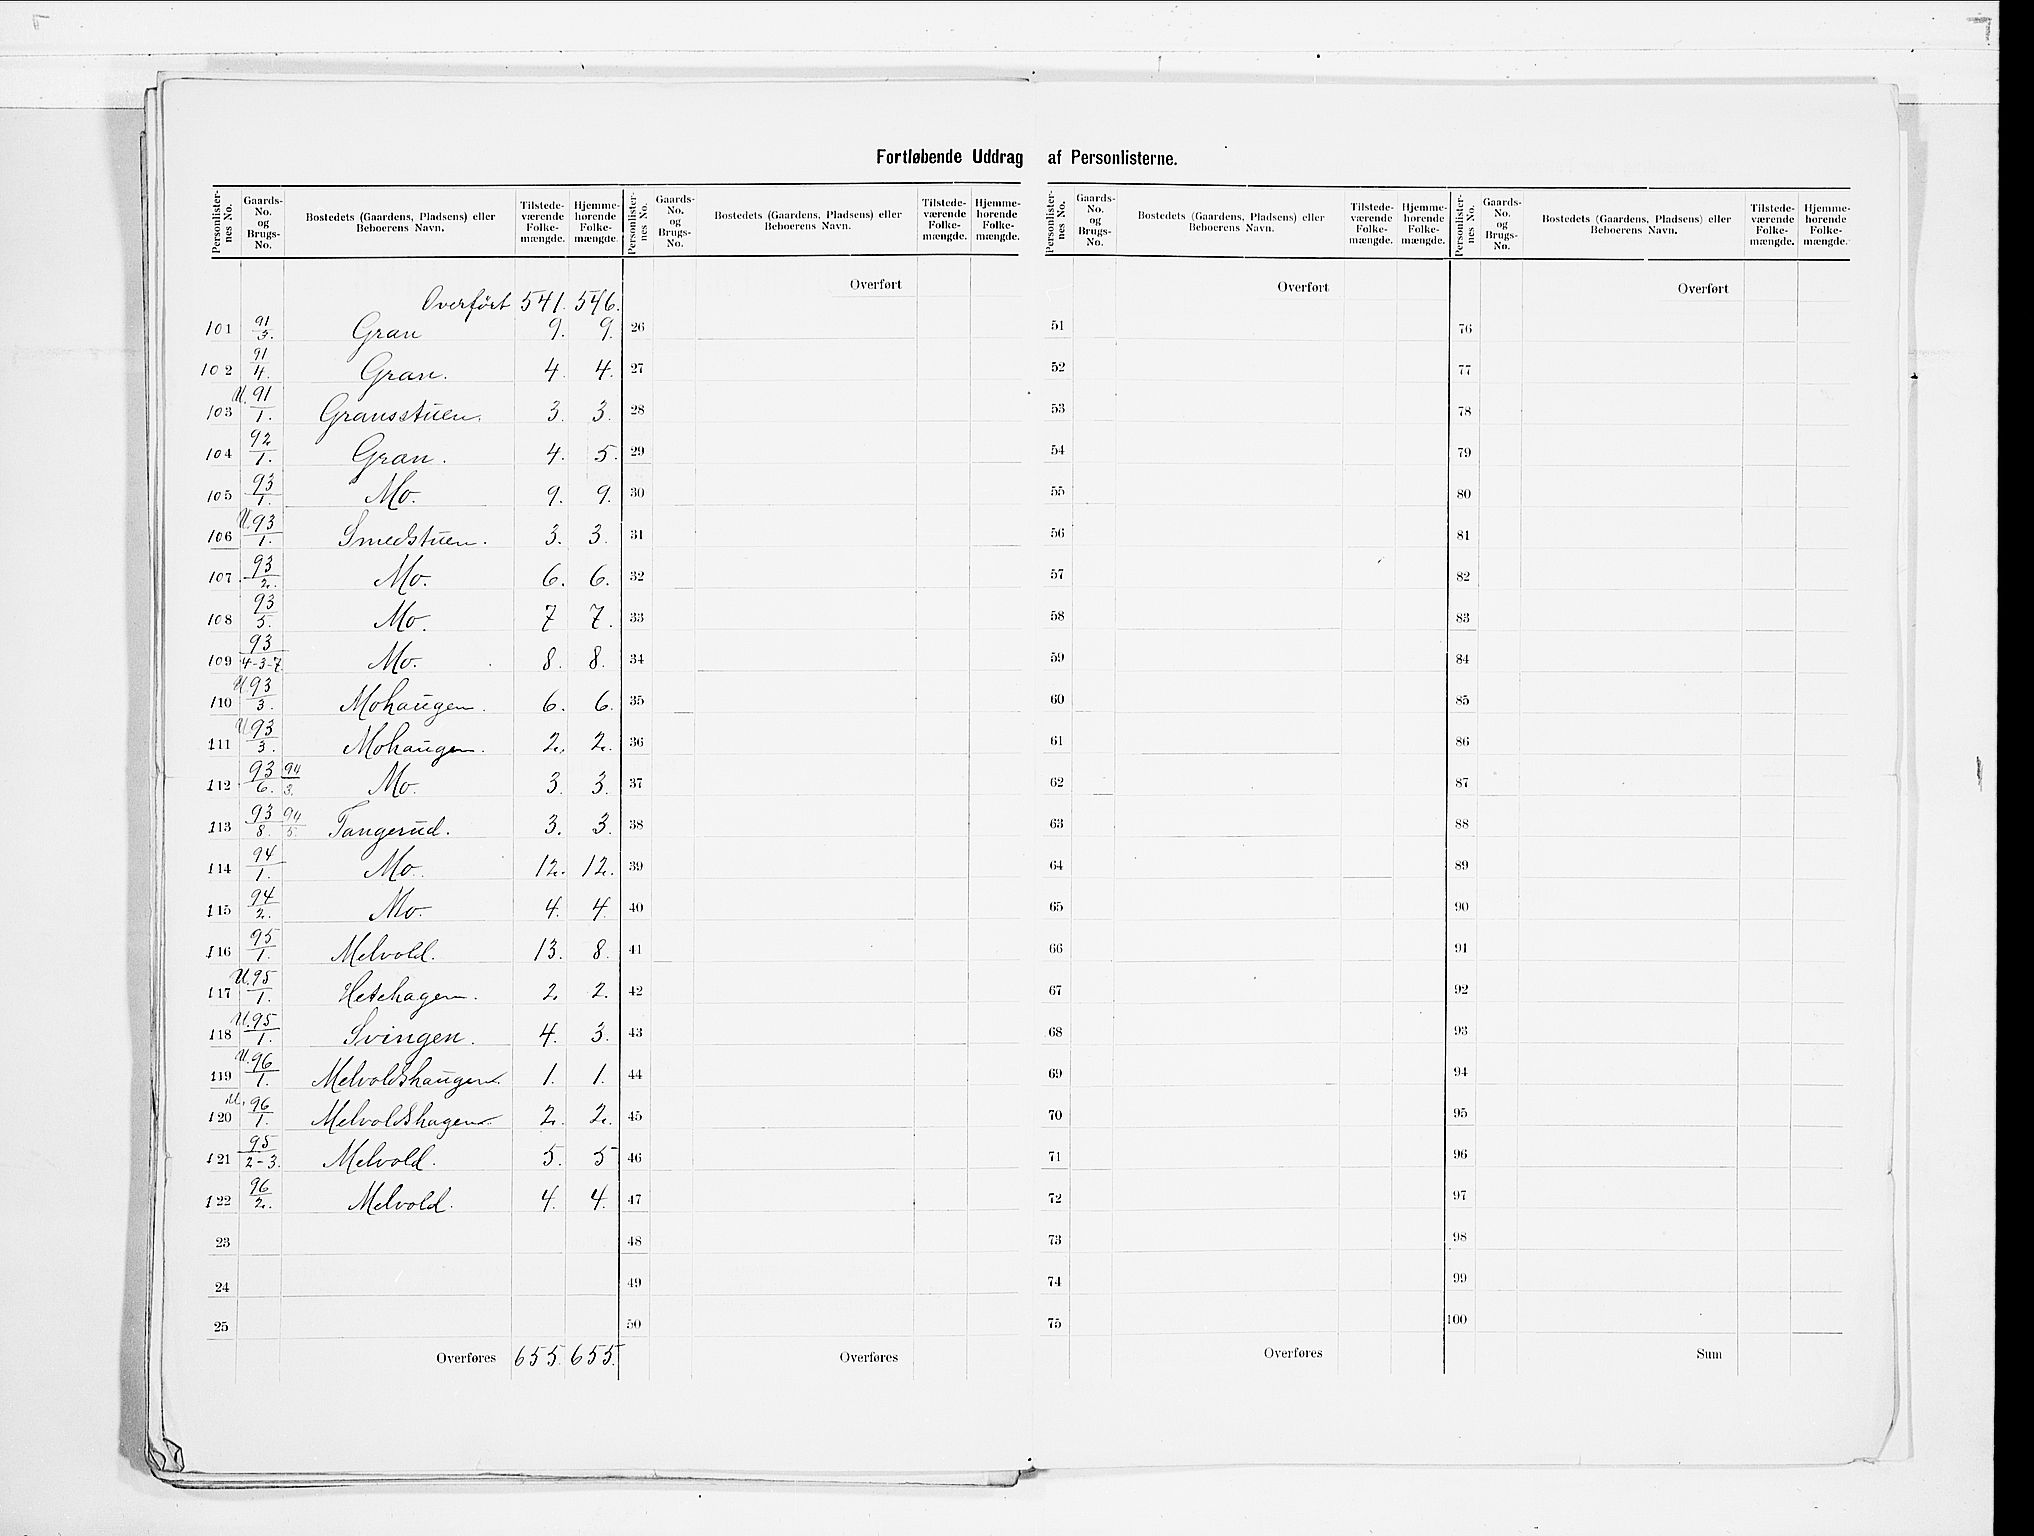 Fortløbende Uddrag af Personlisterne.
Personlister-nes No. | Gaards-No. og Brugs-No. | Bostedets (Gaardens, Pladsens) eller Beboerens Navn. | Tilstede-værende Folke-mængde. | Hjemme-hørende Folke-mængde. | Personlister-nes No. | Gaards-No. og Brugs-No. | Bostedets (Gaardens, Pladsens) eller Beboerens Navn. | Tilstede-værende Folke-mængde. | Hjemme-hørende Folke-mængde. | Personlister-nes No. | Gaards-No. og Brugs-No. | Bostedets (Gaardens, Pladsens) eller Beboerens Navn. | Tilstede-værende Folke-mængde. | Hjemme-hørende Folke-mængde. | Personlister-nes No. | Gaards-No. og Brugs-No. | Bostedets (Gaardens, Pladsens) eller Beboerens Navn. | Tilstede-værende Folke-mængde. | Hjemme-hørende Folke-mængde.
Overført 541. 546. Overført Overført Overført
101 91/3. Gran 9. 9. 26 51 76
102 91/4. Gran. 4. 4. 27 52 77
103 U. 91/1. Gransstuen. 3. 3. 28 53 78
104 92/1. Gran. 4. 5. 29 54 79
105 93/1. Mo. 9. 9. 30 55 80
106 U. 93/1. Smedstuen. 3. 3. 31 56 81
107. 93/2. Mo. 6. 6. 32 57 82
108 93/5. Mo. 7 7. 33 58 83
109 93/4-3-7 Mo. 8. 8. 34 59 84
110 U. 93/3. Mohaugen. 6. 6. 35 60 85
111 U. 93/3. Mohaugen. 2. 2. 36 61 86
112 93/6. 94/3. Mo. 3. 3. 37 62 87
113 93/8. 94/5. Tangerud. 3. 3. 38 63 88
114 94/1. Mo. 12. 12. 39 64 89
115 94/2. Mo. 4. 4. 40 65 90
116 95/1. Melvold. 13. 8. 41 66 91
117 U. 95/1. Hetehagen. 2. 2. 42 67 92
118 U. 95/1. Svingen. 4. 3. 43 68 93
119 U. 96/1. Melvoldshaugen. 1. 1. 44 69 94
120 U. 96/1. Melvoldshagen. 2. 2. 45 70 95
121 95/2-3. Melvold. 5. 5 46 71 96
122 96/2. Melvold. 4. 4. 47 72 97
23 48 73 98
24 49 74 99
25 50 75 100
Overføres 655. 655. Overføres Overføres Sum